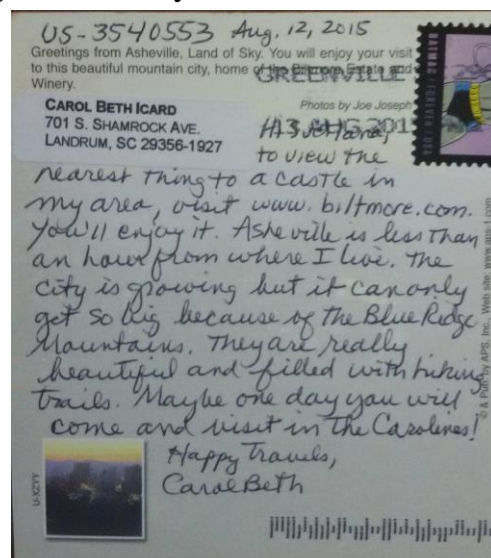 US-3540553 Aug. 12, 2015
Greetings from Asheville, Land of Sky. You will enjoy your visit
to this beautiful mountain city, home of the Biltmore Estate and
Winery.
GREENVILLE
Photos by Joe Joseph
13 AUG 201
CAROL BETH ICARD
701 S. SHAMROCK AVE.
LANDRUM, SC 29356-1927
Hi
to view the
nearest thing to a castle in
my area, visit www.biltmore.com.
You'll enjoy it. Asheville is less than
an hour from where I live. The
city is growing but it can only
get so big because of the Blue Ridge
Mountains. They are really
beautiful and filled with hiking
trails. Maybe one day you will
come and visit in the Carolinas!
Happy Travels,
Carol Beth
BATMAN FOREVER USA
© & Pub. by APS, Inc. Web site: www.aps-1.com
U-XZYY